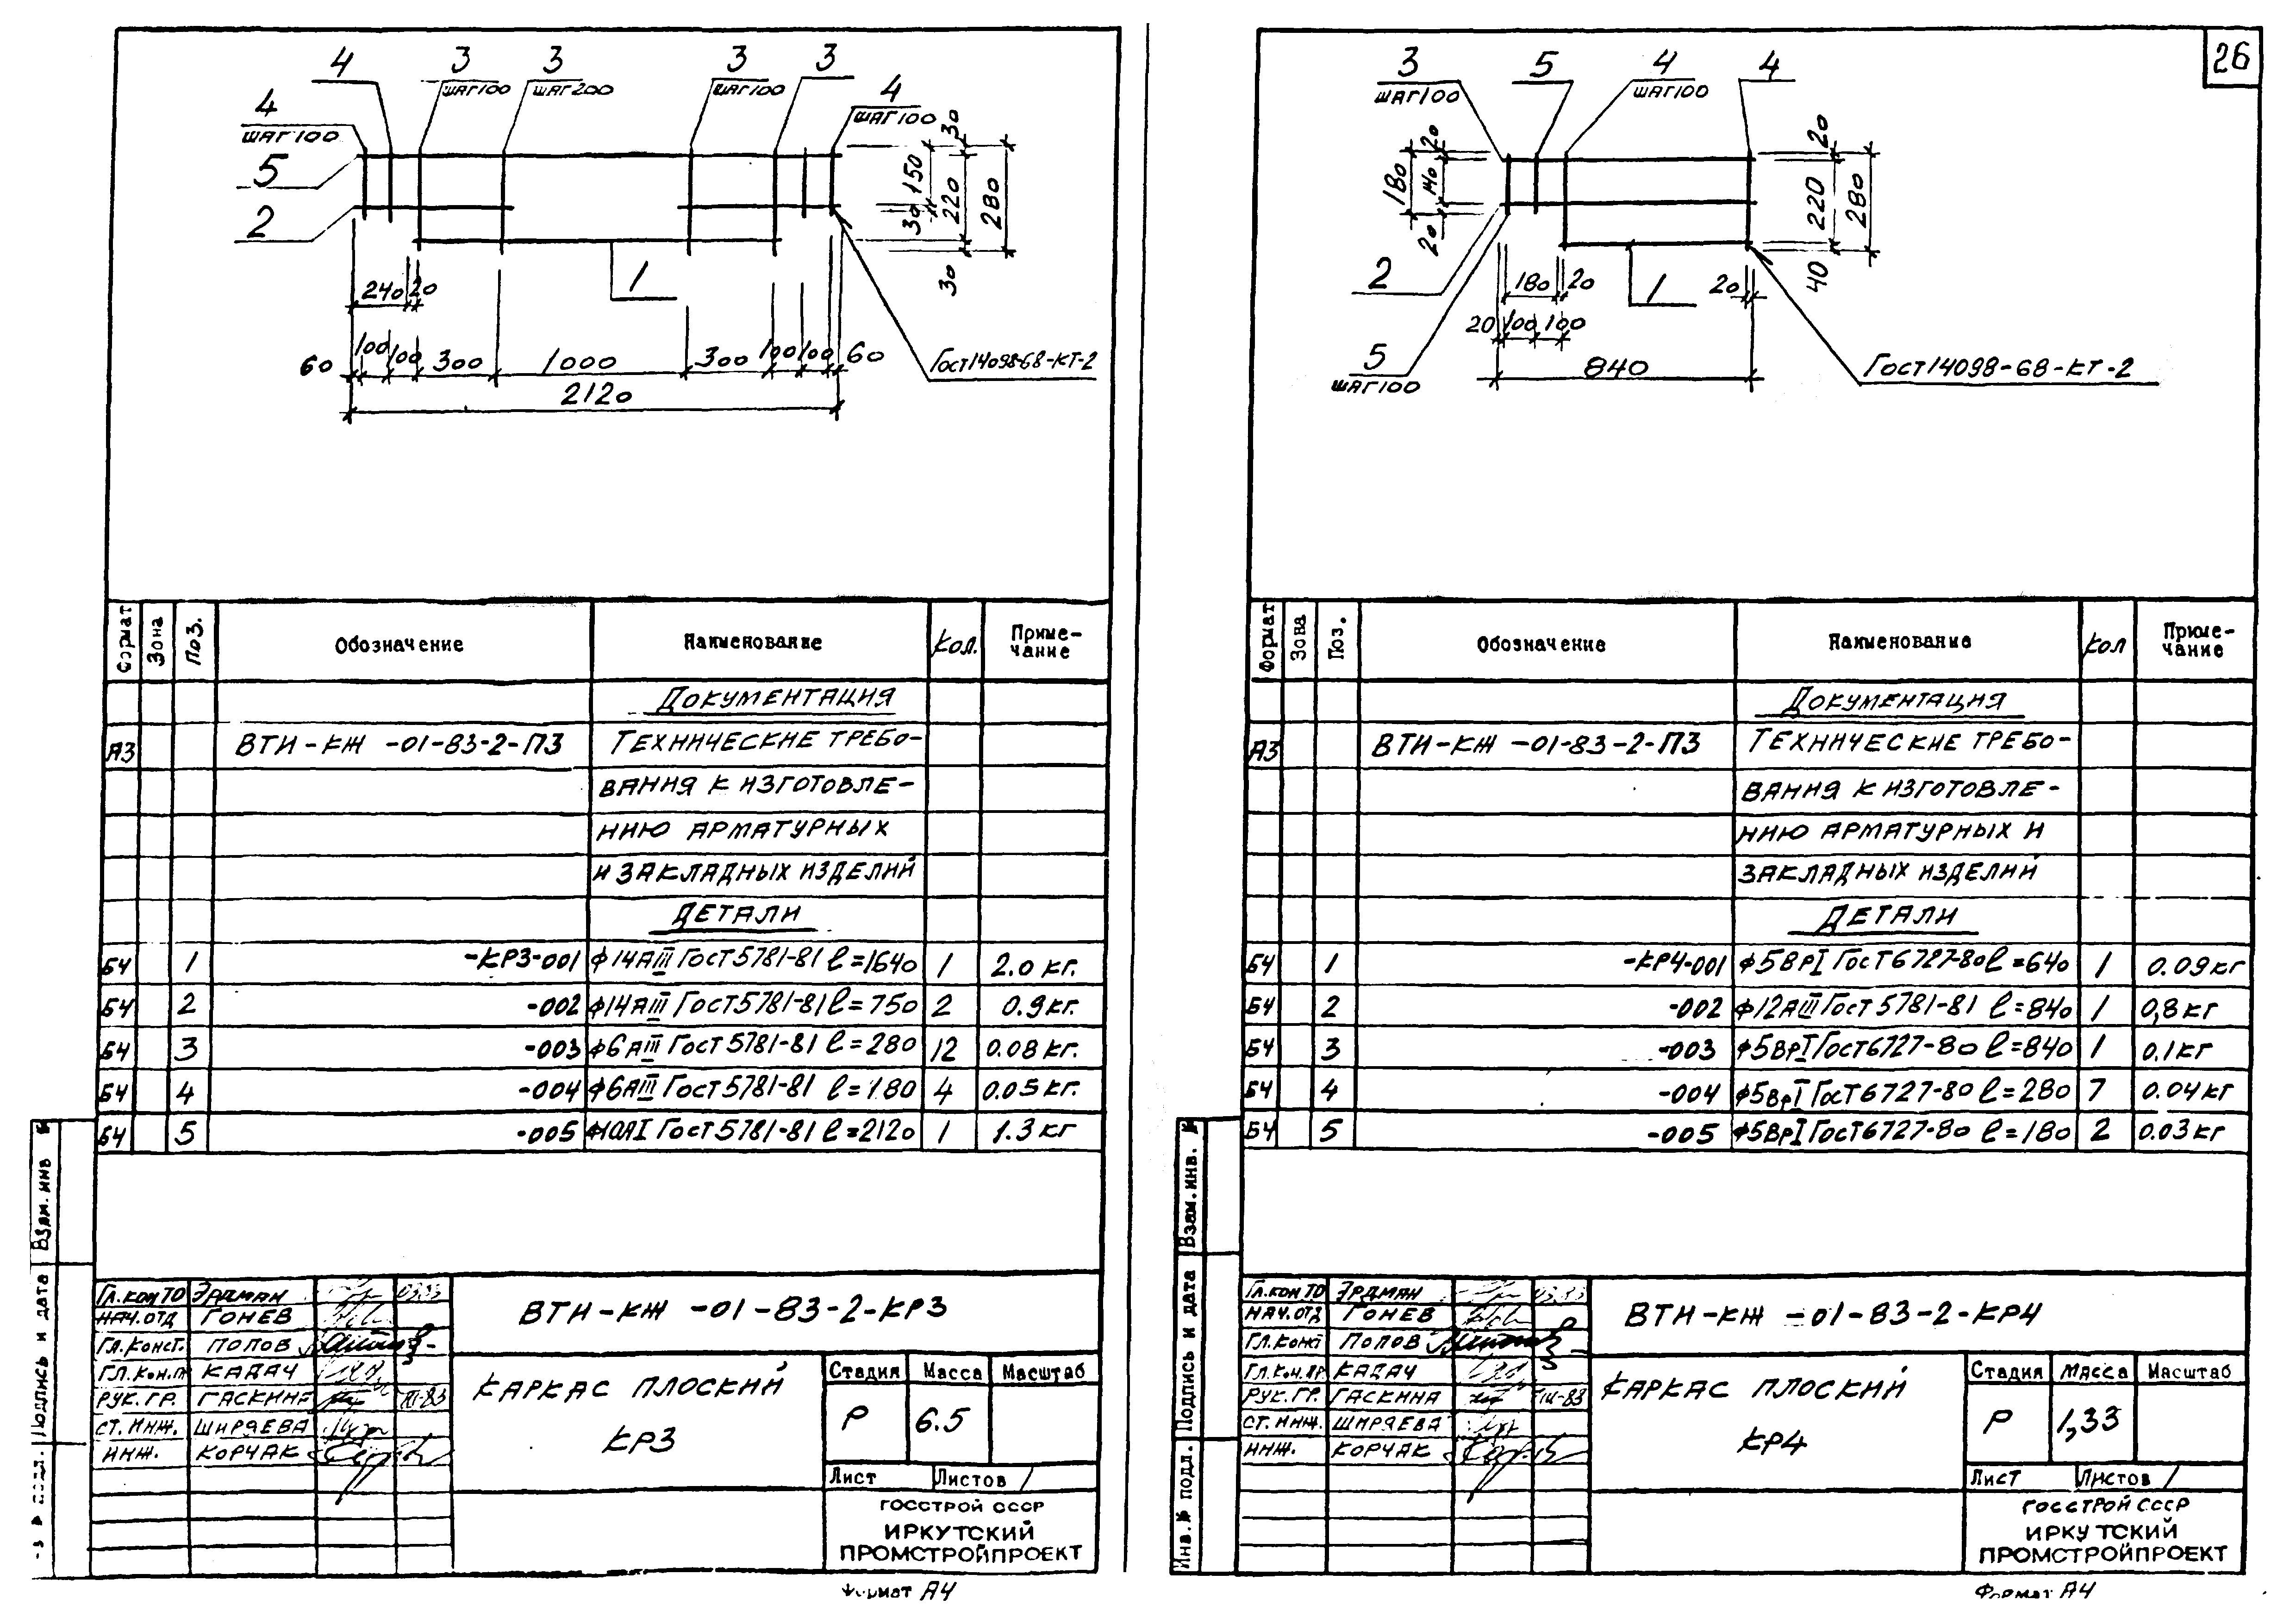 4
3
3
3
3
ШАГ100
ШАГ200
ШАГ100
4
ШАГ100
4
ШАГ100
5
2
1
30
150
220
280
30
30
240
20
60
100
100
300
1000
300
100
100
60
2120
Гост14098-68-КТ-2
Формат
Зона
Поз.
Обозначение
Наименование
Кол.
Приме-
чание
Документация
А3 ВТИ-КЖ -01-83-2-ПЗ Технические требо-
вания к изготовле-
нию арматурных
и закладных изделий
Детали
БЧ 1 -КР3-001 ф14АIII Гост5781-81 l=1640 1 2.0 кг.
БЧ 2 -002 ф14АIII Гост5781-81 l=750 2 0.9кг.
БЧ 3 -003 ф6АIII Гост5781-81 l=280 12 0.08кг.
БЧ 4 -004 ф6АIII Гост5781-81 l=180 4 0.05кг.
БЧ 5 -005 ф10АI Гост5781-81 l=2120 1 1.3кг
Взам.инв
Подпись и дата
Гл.кон ТО Эрдман 03.83
Нач.отд Гонев
Гл.конст. Попов
Гл.кон.п Кадач
Рук.гр. Гаскина III-83
Ст.инж. Ширяева
Инж. Корчак
ВТИ-КЖ -01-83-2-КР3
Каркас плоский
КР3
Стадия Масса Масштаб
Р 6.5
Лист Листов 1
ГОССТРОЙ СССР
ИРКУТСКИЙ
ПРОМСТРОЙПРОЕКТ
Формат А4
26
3
ШАГ100
5
4
ШАГ100
4
180
20
140
20
20
220
280
40
2
5
ШАГ100
1
180
20
20
20
100
100
840
Гост14098-68-КТ-2
Формат
Зона
Поз.
Обозначение
Наименование
Кол
Приме-
чание
Документация
А3 ВТИ-КЖ -01-83-2-ПЗ Технические требо-
вания к изготовле-
нию арматурных и
закладных изделий
Детали
БЧ 1 -КР4-001 ф5ВрI Гост6727-80 l=640 1 0.09кг
БЧ 2 -002 ф12АIII Гост5781-81 l=840 1 0,8кг
БЧ 3 -003 ф5ВрI Гост6727-80 l=840 1 0.1кг
БЧ 4 -004 ф5ВрI Гост6727-80 l=280 7 0.04кг
БЧ 5 -005 ф5ВрI Гост6727-80 l=180 2 0.03кг
Взам.инв. №
Подпись и дата
Инв.№ подл.
Гл.кон ТО Эрдман 03.83
Нач.отд Гонев
Гл.конт Попов
Гл.кон.пр Кадач
Рук.гр. Гаскина III-83
Ст.инж. Ширяева
Инж. Корчак
ВТИ-КЖ -01-83-2-КР4
Каркас плоский
КР4
Стадия Масса Масштаб
Р 1,33
Лист Листов 1
ГОССТРОЙ СССР
ИРКУТСКИЙ
ПРОМСТРОЙПРОЕКТ
Формат А4